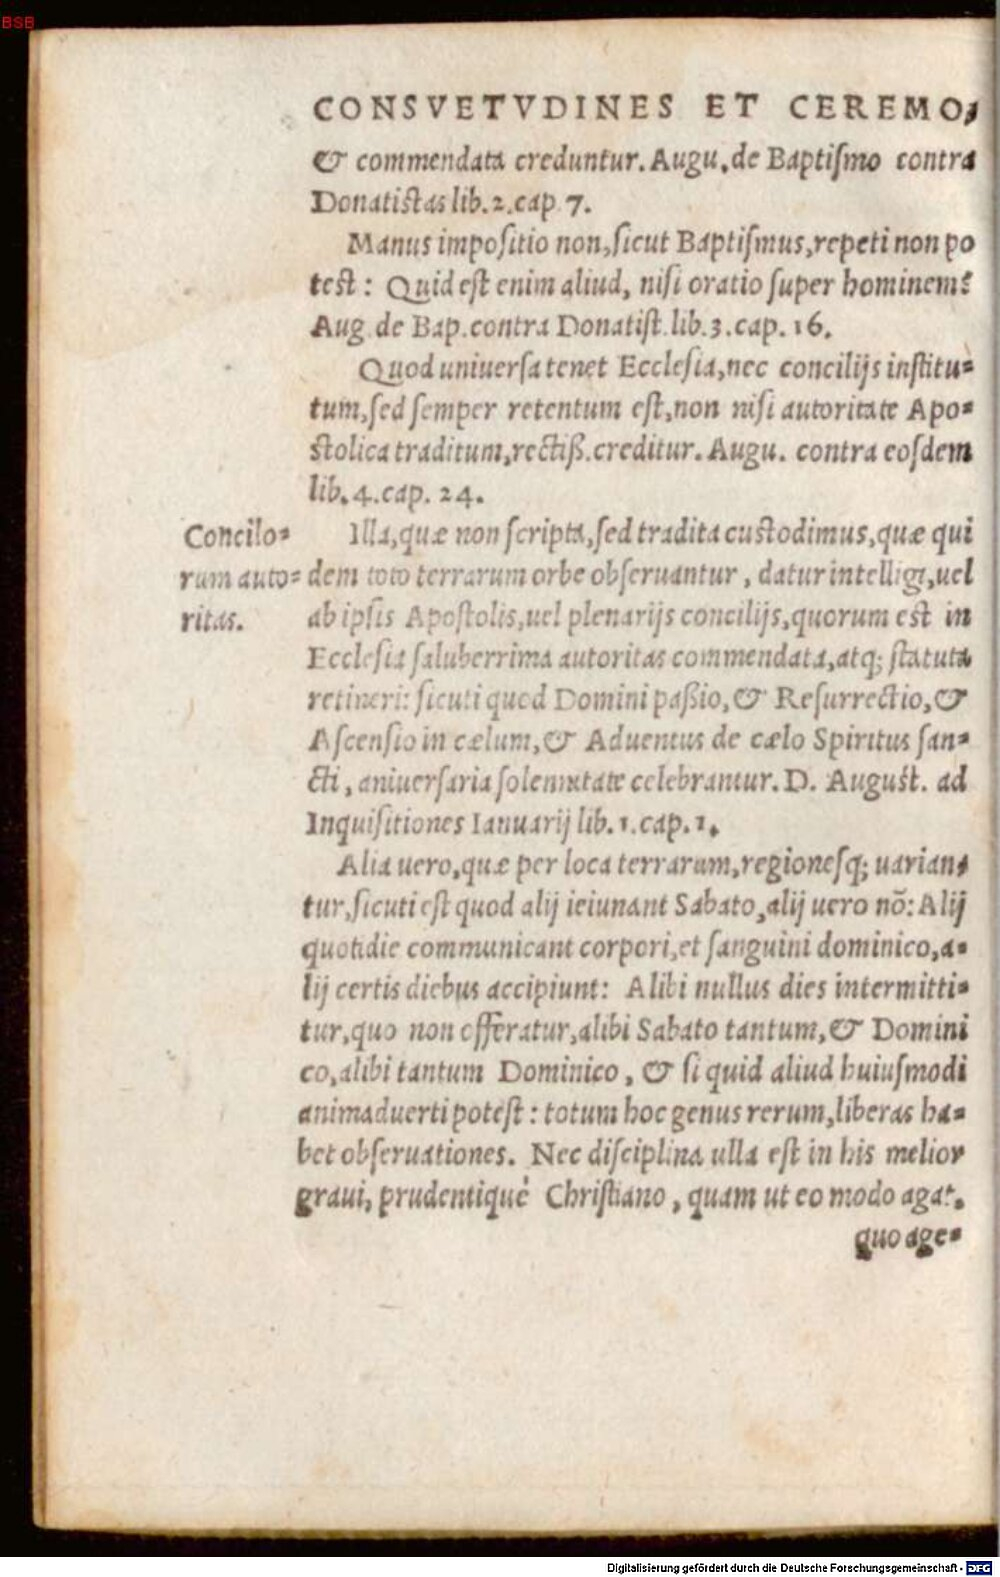 BSB
CONSVETVDINES ET CEREMO,
& commendata creduntur. Augu. de Baptiſmo contra
Donatiſtas lib. 2. cap. 7.
Manus impoſitio non, ſicut Baptiſmus, repeti non po
teſt: Quid eſt enim aliud, niſi oratio ſuper hominem?
Aug. de Bap. contra Donatiſt. lib. 3. cap. 16.
Quod uniuerſa tenet Eccleſia, nec concilijs inſtitu=
tum, ſed ſemper retentum eſt, non niſi autoritate Apo=
ſtolica traditum, rectiß. creditur. Augu. contra eoſdem
lib. 4. cap. 24.
Concilo=
rum auto=
ritas.
Illa, quæ non ſcripta, ſed tradita cuſtodimus, quæ qui
dem toto terrarum orbe obſeruantur, datur intelligi, uel
ab ipſis Apoſtolis, uel plenarijs concilijs, quorum eſt in
Eccleſia ſaluberrima autoritas commendata, atq; ſtatuta
retineri: ſicuti quod Domini paßio, & Reſurrectio, &
Aſcenſio in cælum, & Aduentus de cælo Spiritus ſan=
cti, aniuerſaria ſolennitate celebrantur. D. Auguſt. ad
Inquiſitiones Ianuarij lib. 1. cap. 1.
Alia uero, quæ per loca terrarum, regioneſq; uarian=
tur, ſicuti eſt quod alij ieiunant Sabato, alij uero nõ: Alij
quotidie communicant corpori, et ſanguini dominico, a=
lij certis diebus accipiunt: Alibi nullus dies intermitti=
tur, quo non offeratur, alibi Sabato tantum, & Domini
co, alibi tantum Dominico, & ſi quid aliud huiuſmodi
animaduerti poteſt: totum hoc genus rerum, liberas ha=
bet obſeruationes. Nec diſciplina ulla eſt in his melior
graui, prudentiquè Chriſtiano, quam ut eo modo agat,
quo age=
Digitalisierung gefördert durch die Deutsche Forschungsgemeinschaft - DFG